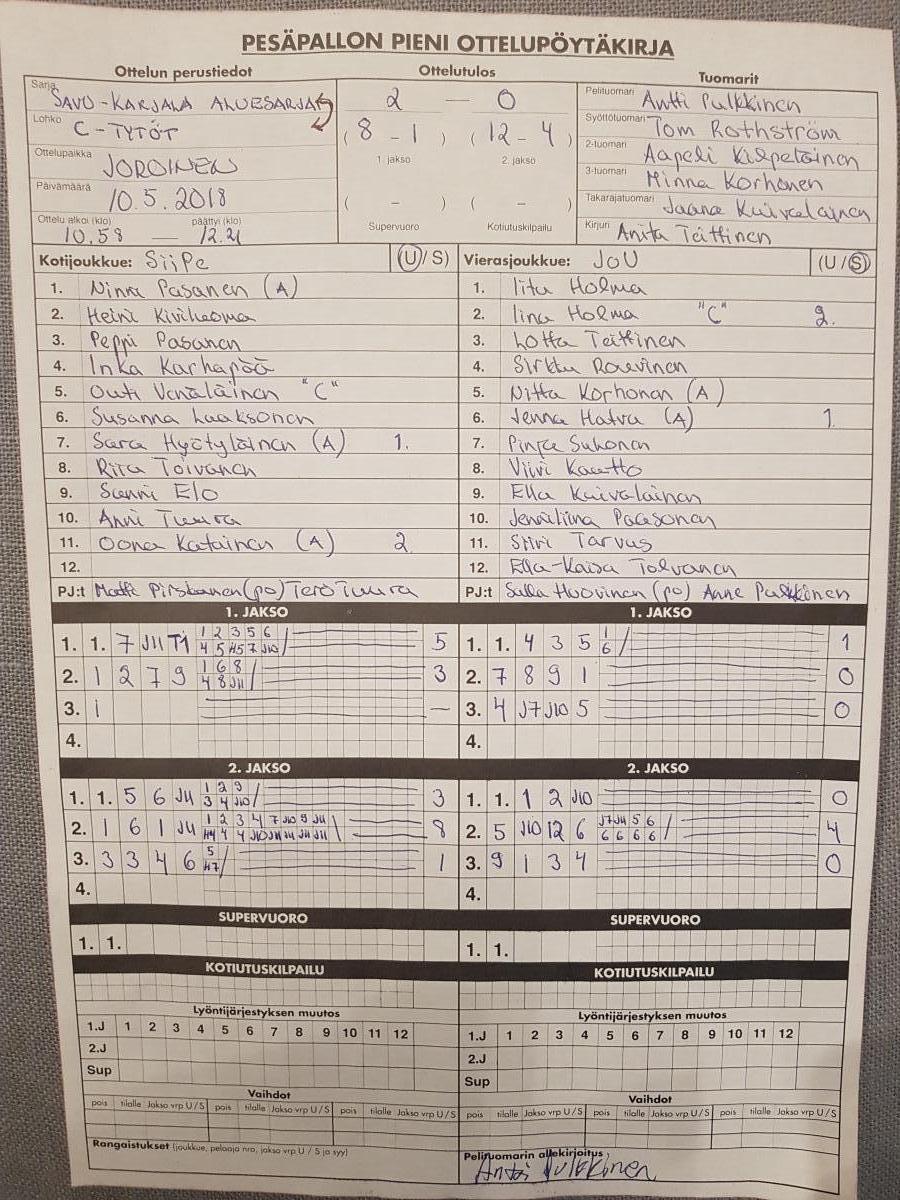 PESÄPALLON PIENI OTTELUPÖYTÄKIRJA
Ottelun perustiedot Ottelutulos Tuomarit
Sarja SAVO-KARJALA ALUESARJA
Lohko C-TYTÖT
Ottelupaikka JOROINEN
Päivämäärä 10.5.2018
Ottelu alkoi (klo) päättyi (klo)
10.58 — 12.21
2 — 0
(8 - 1) (12 - 4)
1. jakso 2. jakso
( - ) ( - )
Supervuoro Kotiutuskilpailu
Pelituomari Antti Pulkkinen
Syöttötuomari Tom Rothström
2-tuomari Aapeli Kilpeläinen
3-tuomari Minna Korhonen
Takarajatuomari Jaana Kuivalainen
Kirjuri Anita Teittinen
Kotijoukkue: SiiPe (U/S)
1. Ninna Pasanen (A)
2. Heini Kiviheoma
3. Peppi Pasanen
4. Inka Karhapää
5. Outi Venäläinen "C"
6. Susanna Laaksonen
7. Sara Hyötyläinen (A) 1.
8. Rita Toivanen
9. Sanni Elo
10. Anni Tuura
11. Oona Katainen (A) 2
12.
PJ:t Matti Pirskanen (po) Tero Tuura
Vierasjoukkue: JoU (U/S)
1. Iita Holma
2. Iina Holma "C" 2.
3. Lotta Teittinen
4. Sirkku Raevinen
5. Nitta Korhonen (A)
6. Jenna Hatva (A) 1.
7. Pinja Suhonen
8. Viivi Kautto
9. Ella Kuivalainen
10. Jenniliina Paasonen
11. Siiri Tarvus
12. Ella-Kaisa Tolvanen
PJ:t Salla Huovinen (po) Anne Pulkkinen
1. JAKSO
1. 1. 7 J11 T1 1 2 3 5 6 / 5
4 5 H5 7 J10
2. 1 2 7 9 1 6 8 / 3
4 8 J11
3. 1 —
4.
1. JAKSO
1. 1. 4 3 5 1 / 1
6
2. 7 8 9 1 0
3. 4 J7 J10 5 0
4.
2. JAKSO
1. 1. 5 6 J11 1 2 9 / 3
3 4 J10
2. 1 6 1 J11 1 2 3 4 7 J10 9 J11 \ 8
H4 4 4 J10 J11 J11 J11 J11
3. 3 3 4 6 5 / 1
H7
4.
2. JAKSO
1. 1. 1 2 J10 0
2. 5 J10 12 6 J7 J11 5 6 / 4
6 6 6 6
3. 9 1 3 4 0
4.
SUPERVUORO
1. 1.
SUPERVUORO
1. 1.
KOTIUTUSKILPAILU
KOTIUTUSKILPAILU
Lyöntijärjestyksen muutos
1.J 1 2 3 4 5 6 7 8 9 10 11 12
2.J
Sup
Lyöntijärjestyksen muutos
1.J 1 2 3 4 5 6 7 8 9 10 11 12
2.J
Sup
Vaihdot
pois tilalle Jakso vrp U/S pois tilalle Jakso vrp U/S pois tilalle Jakso vrp U/S
Vaihdot
pois tilalle Jakso vrp U/S pois tilalle Jakso vrp U/S pois tilalle Jakso vrp U/S
Rangaistukset (joukkue, pelaaja nro, jakso vrp U / S ja syy)
Pelituomarin allekirjoitus
Antti Pulkkinen